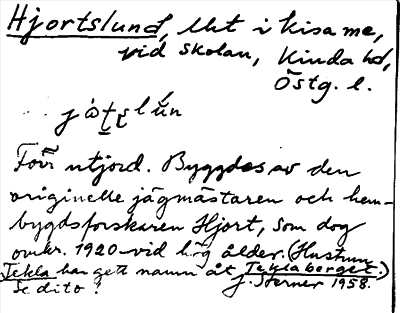 Hjortslund, lht i Kisa me,
vid skolan, Kinda hd,
Östg. l.
Förr utjord. Byggdes av den
originelle jägmästaren och hem-
bygdsforskaren Hjort, som dog
omkr. 1920 vid hög ålder. (Hustrun
Tekla har gett namn åt Teklaberget.)
Se dito! J. Sterner 1958.